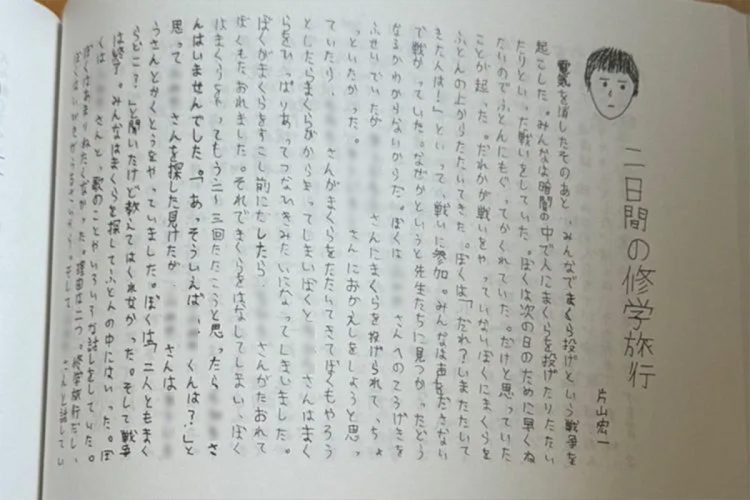 二日間の修学旅行
片山宏一
電気を消したそのあと、みんなでまくら投げという戦争を
起こした。みんなは暗闇の中で人にまくらを投げたりたたい
たりといった戦いをしていた。ぼくは次の日のために早くね
たいのでふとんにもぐってかくれていた。だけと思っていた
ことが起った。だれかが戦いをやっていないぼくにまくらを
ふとんの上からたたいてきた。ぼくは「だれ?いまたたいて
きた人は!」といって、戦いに参加。みんなは声をださない
で戦がっていた。なぜかというと先生たちに見つかったどう
なるかわからないからだ。ぼくは さんへのこうげきを
ふせいでいたが さんにまくらを投げられて、ちょ
っといたかった。 さんにおかえしをしようと思っ
ていたり、 さんがまくらをたたいてきてぼくもやろう
としたらまくらがからまってしまいぼくと さんはまく
らをひっぱりあってつなひきみたいになってしまいました。
ぼくがまくらをすこし前にたしたら、 さんがたおれて
ぼくもたおれました。それでまくらをはなしてしまい、ぼく
はまくらをやってもう二〜三回たたこうと思ったら さ
んはいませんでした。「あっそういえば、 くんは?」と
思って さんを探した見けたが、 さんは
うさんとかくとうをやっていました。ぼくは「二人ともまく
らどこ?」と聞いたけど教えてはくれなかった。そして戦争
は終了。みんなはまくらを探してふとんの中にはいった。ぼ
くは さんと、歌のことやいろいろな話しをしていた。
ぼくはあまりねたくなかった。理由は二つ。修学旅行だし、
さんと話してい